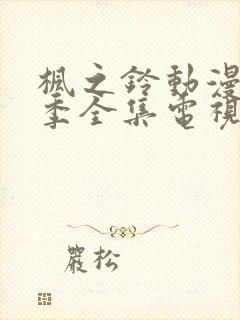 楓之鈴動漫
季全集電視
嚴松